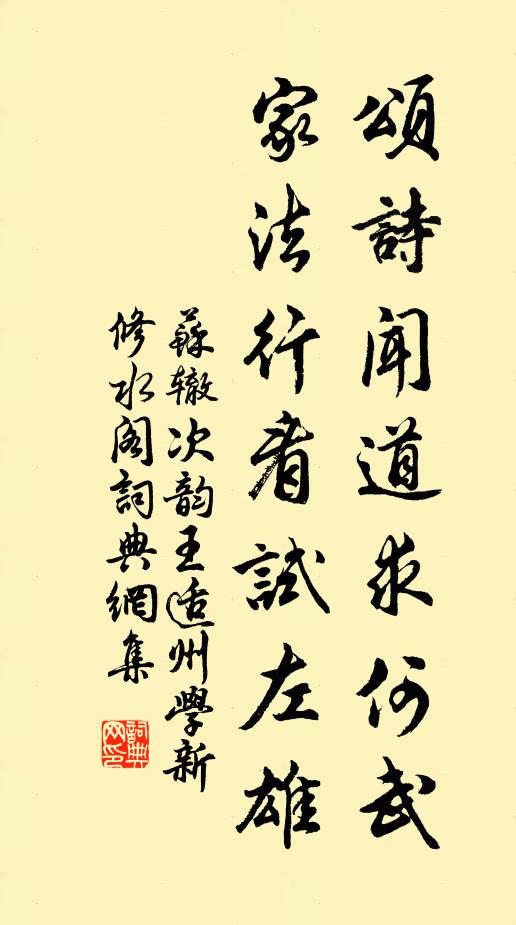 頌詩聞道求何武
家法行看試左雄
蘇辙次韵王适州學新
修水阁詞典網集
詞典網印